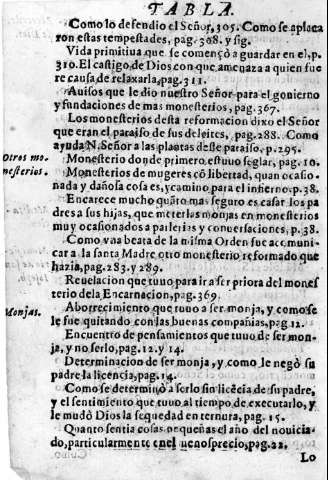 TABLA.
Como lo defendio el Señor, 305. Como se aplaca
ron estas tempestades, pag. 308. y sig.
Vida primitiua que se començò a guardar en el, p.
310. El castigo de Dios con que amenaza a quien fue
re causa de relaxarla, pag. 311.
Auisos que le dio nuestro Señor para el gouierno
y fundaciones de mas monesterios, pag. 367.
Los monesterios desta reformacion dixo el Señor
que eran el paraiso de sus deleites, pag. 288. Como
ayuda N. Señor a las plantas deste paraiso, p. 295.
Otros mo-
nesterios.
Monesterio donde primero estuuo seglar, pag. 10.
Monesterios de mugeres cõ libertad, quan ocasio-
nada y dañosa cosa es, y camino para el infierno. p. 38.
Encarece mucho quãto mas seguro es casar los pa
dres a sus hijas, que meterlas monjas en monesterios
muy ocasionados a parlerias y conuersaciones, p. 38.
Como vna beata de la misma Orden fue a comuni-
car a la santa Madre otro monesterio reformado que
hazia, pag. 283. y 289.
Reuelacion que tuuo para ir a ser priora del mones
terio de la Encarnacion, pag. 369.
Monjas.
Aborrecimiento que tuuo a ser monja, y como se
le fue quitando con las buenas compañias, pag. 12.
Encuentro de pensamientos que tuuo de ser mon-
ja, y no serlo, pag. 12. y 14.
Determinacion de ser monja, y como le negò su
padre la licencia, pag. 14.
Como se determinò a serlo sin licẽcia de su padre,
y el sentimiento que tuuo al tiempo de executarlo, y
le mudò Dios la sequedad en ternura, pag. 15.
Quanto sentia cosas pequeñas el año del nouicia-
do, particularmente en el menosprecio, pag. 22.
Lo